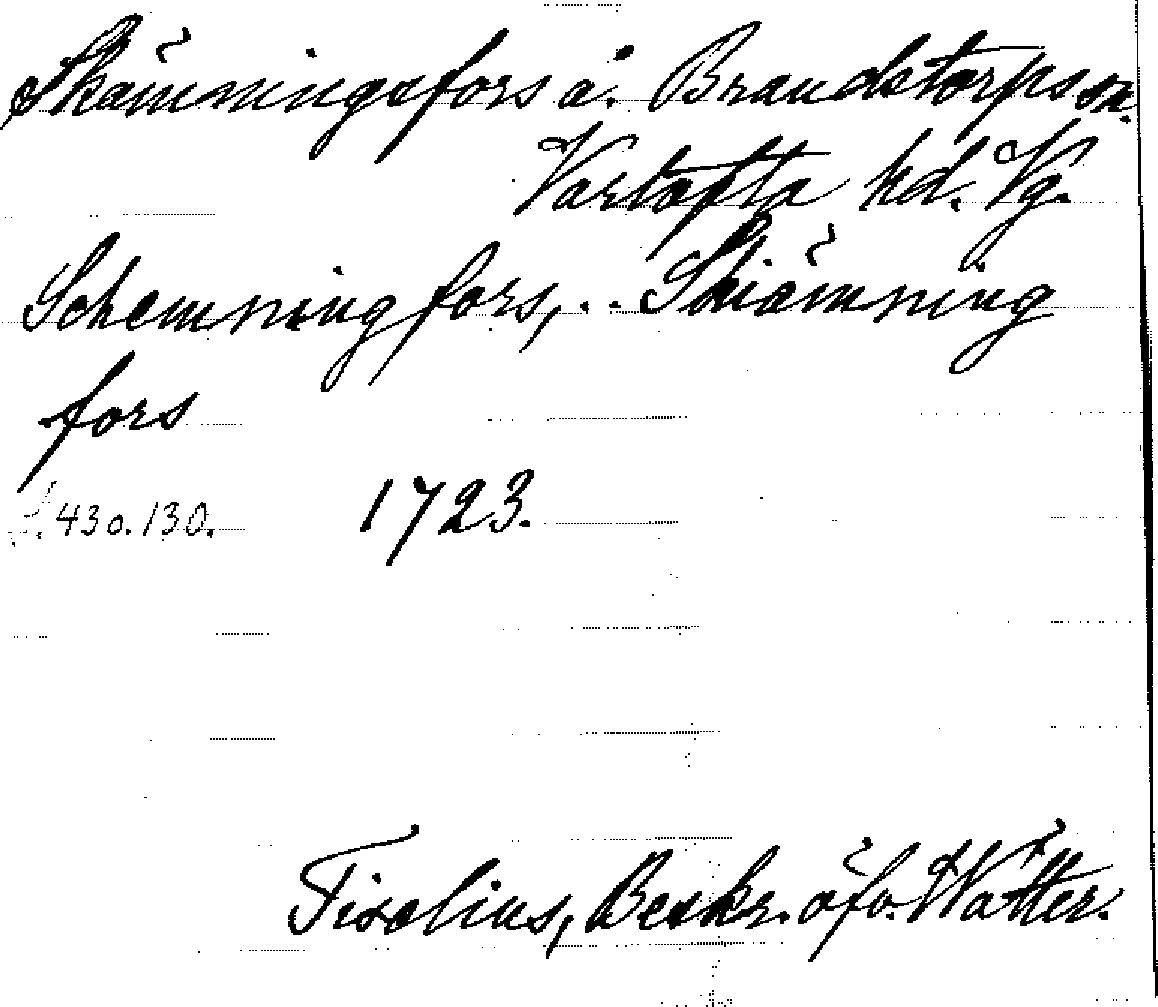 Skämningsfors å. Brandstorps sn.
Vartofta hd. Vg.
Schemningfors, .. Skiämning
fors
S. 43 o. 130. 1723.
Tiselius, Beskr. öfv. Wätter.